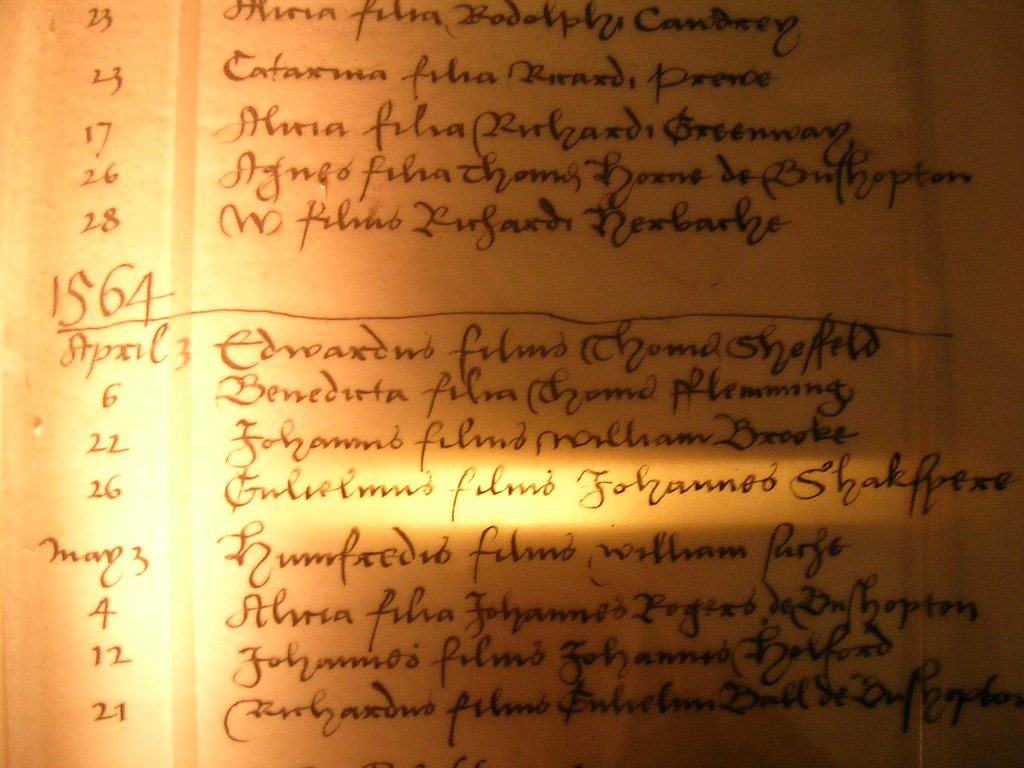 23 Alicia filia Rodolphi Cawdrey
23 Catarina filia Ricardi Prewe
17 Alicia filia Richardi Greenway
26 Agnes filia Thome Horne de Bushopton
28 W filius Richardi Herbache
1564
April 3 Edwardus filius Thome Sheffeld
6 Benedicta filia Thome Fflemming
22 Johannis filius William Brooke
26 Gulielmus filius Johannes Shakspere
May 3 Humfredis filius William
4 Alicia filia Johannes Rogers de Bushopton
12 Johannes filius Johannis Holford
21 Richardus filius Gulielmi Ball de Bushopton